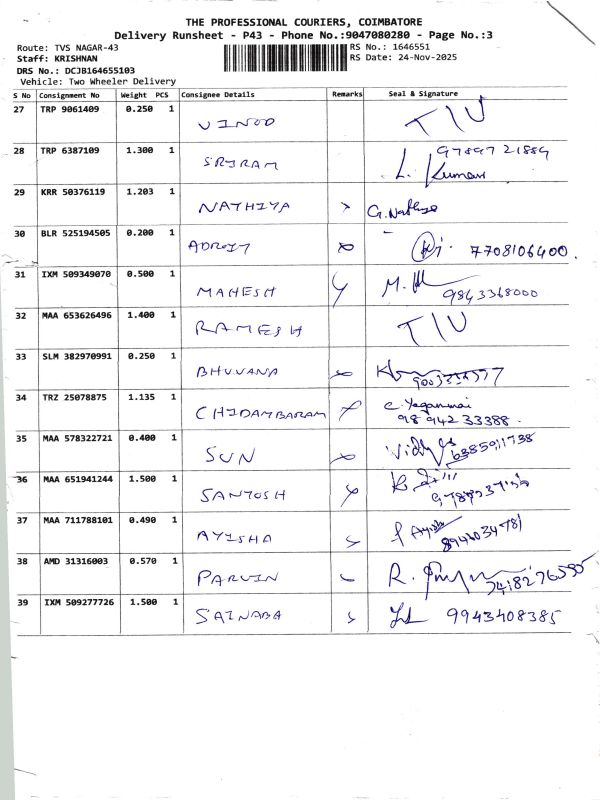 THE PROFESSIONAL COURIERS, COIMBATORE
Delivery Runsheet - P43 - Phone No.:9047080280 - Page No.:3
Route: TVS NAGAR-43 RS No.: 1646551
Staff: KRISHNAN RS Date: 24-Nov-2025
DRS No.: DCJB164655103
Vehicle: Two Wheeler Delivery
S No Consignment No Weight PCS Consignee Details Remarks Seal & Signature
27 TRP 9061409 0.250 1 VINOD TIU
28 TRP 6387109 1.300 1 SRIRAM L. Kumar 9789721884
29 KRR 50376119 1.203 1 NATHIYA G. Nathiya
30 BLR 525194505 0.200 1 ADROIT 7708106400.
31 IXM 509349070 0.500 1 MAHESH M. 9843368000
32 MAA 653626496 1.400 1 RAMESH TIU
33 SLM 382970991 0.250 1 BHUVANA
34 TRZ 25078875 1.135 1 CHIDAMBARAM C. Yegammai
98942 33388.
35 MAA 578322721 0.400 1 SUN 6385911738
36 MAA 651941244 1.500 1 SANTOSH
37 MAA 711788101 0.490 1 AYISHA
38 AMD 31316003 0.570 1 PARVIN R.
39 IXM 509277726 1.500 1 SAINABA 9943408385